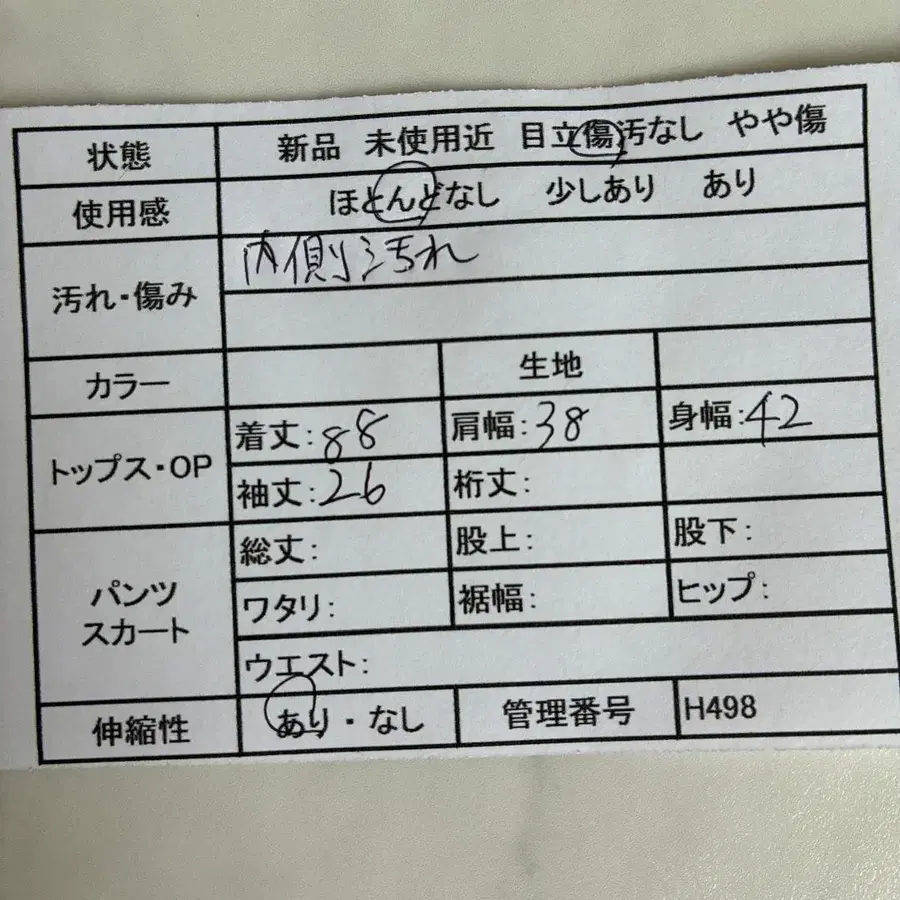 状態 新品 未使用近 目立傷汚なし やや傷
使用感 ほとんどなし 少しあり あり
汚れ・傷み 内側汚れ
カラー 生地
トップス・OP 着丈:88 肩幅:38 身幅:42
袖丈:26 裄丈:
パンツ スカート 総丈: 股上: 股下:
ワタリ: 裾幅: ヒップ:
ウエスト:
伸縮性 あり・なし 管理番号 H498